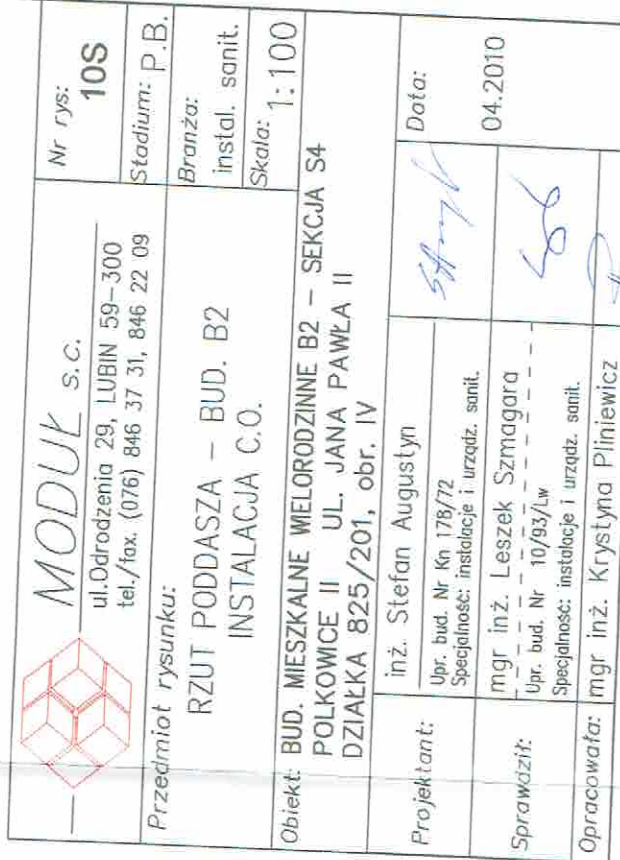 MODUŁ s.c.
ul.Odrodzenia 29, LUBIN 59-300
tel./fax. (076) 846 37 31, 846 22 09
Nr rys:
10S
Przedmiot rysunku:
RZUT PODDASZA - BUD. B2
INSTALACJA C.O.
Stadium: P.B.
Branża:
instal. sanit.
Skala: 1:100
Obiekt: BUD. MIESZKALNE WIELORODZINNE B2 - SEKCJA S4
POLKOWICE II UL. JANA PAWŁA II
DZIAŁKA 825/201, obr. IV
Projektant: inż. Stefan Augustyn
Upr. bud. Nr Kn 178/72
Specjalność: instalacje i urządz. sanit.
Data:
04.2010
Sprawdził: mgr inż. Leszek Szmagara
Upr. bud. Nr 10/93/Lw
Specjalność: instalacje i urządz. sanit.
Opracowała: mgr inż. Krystyna Pliniewicz